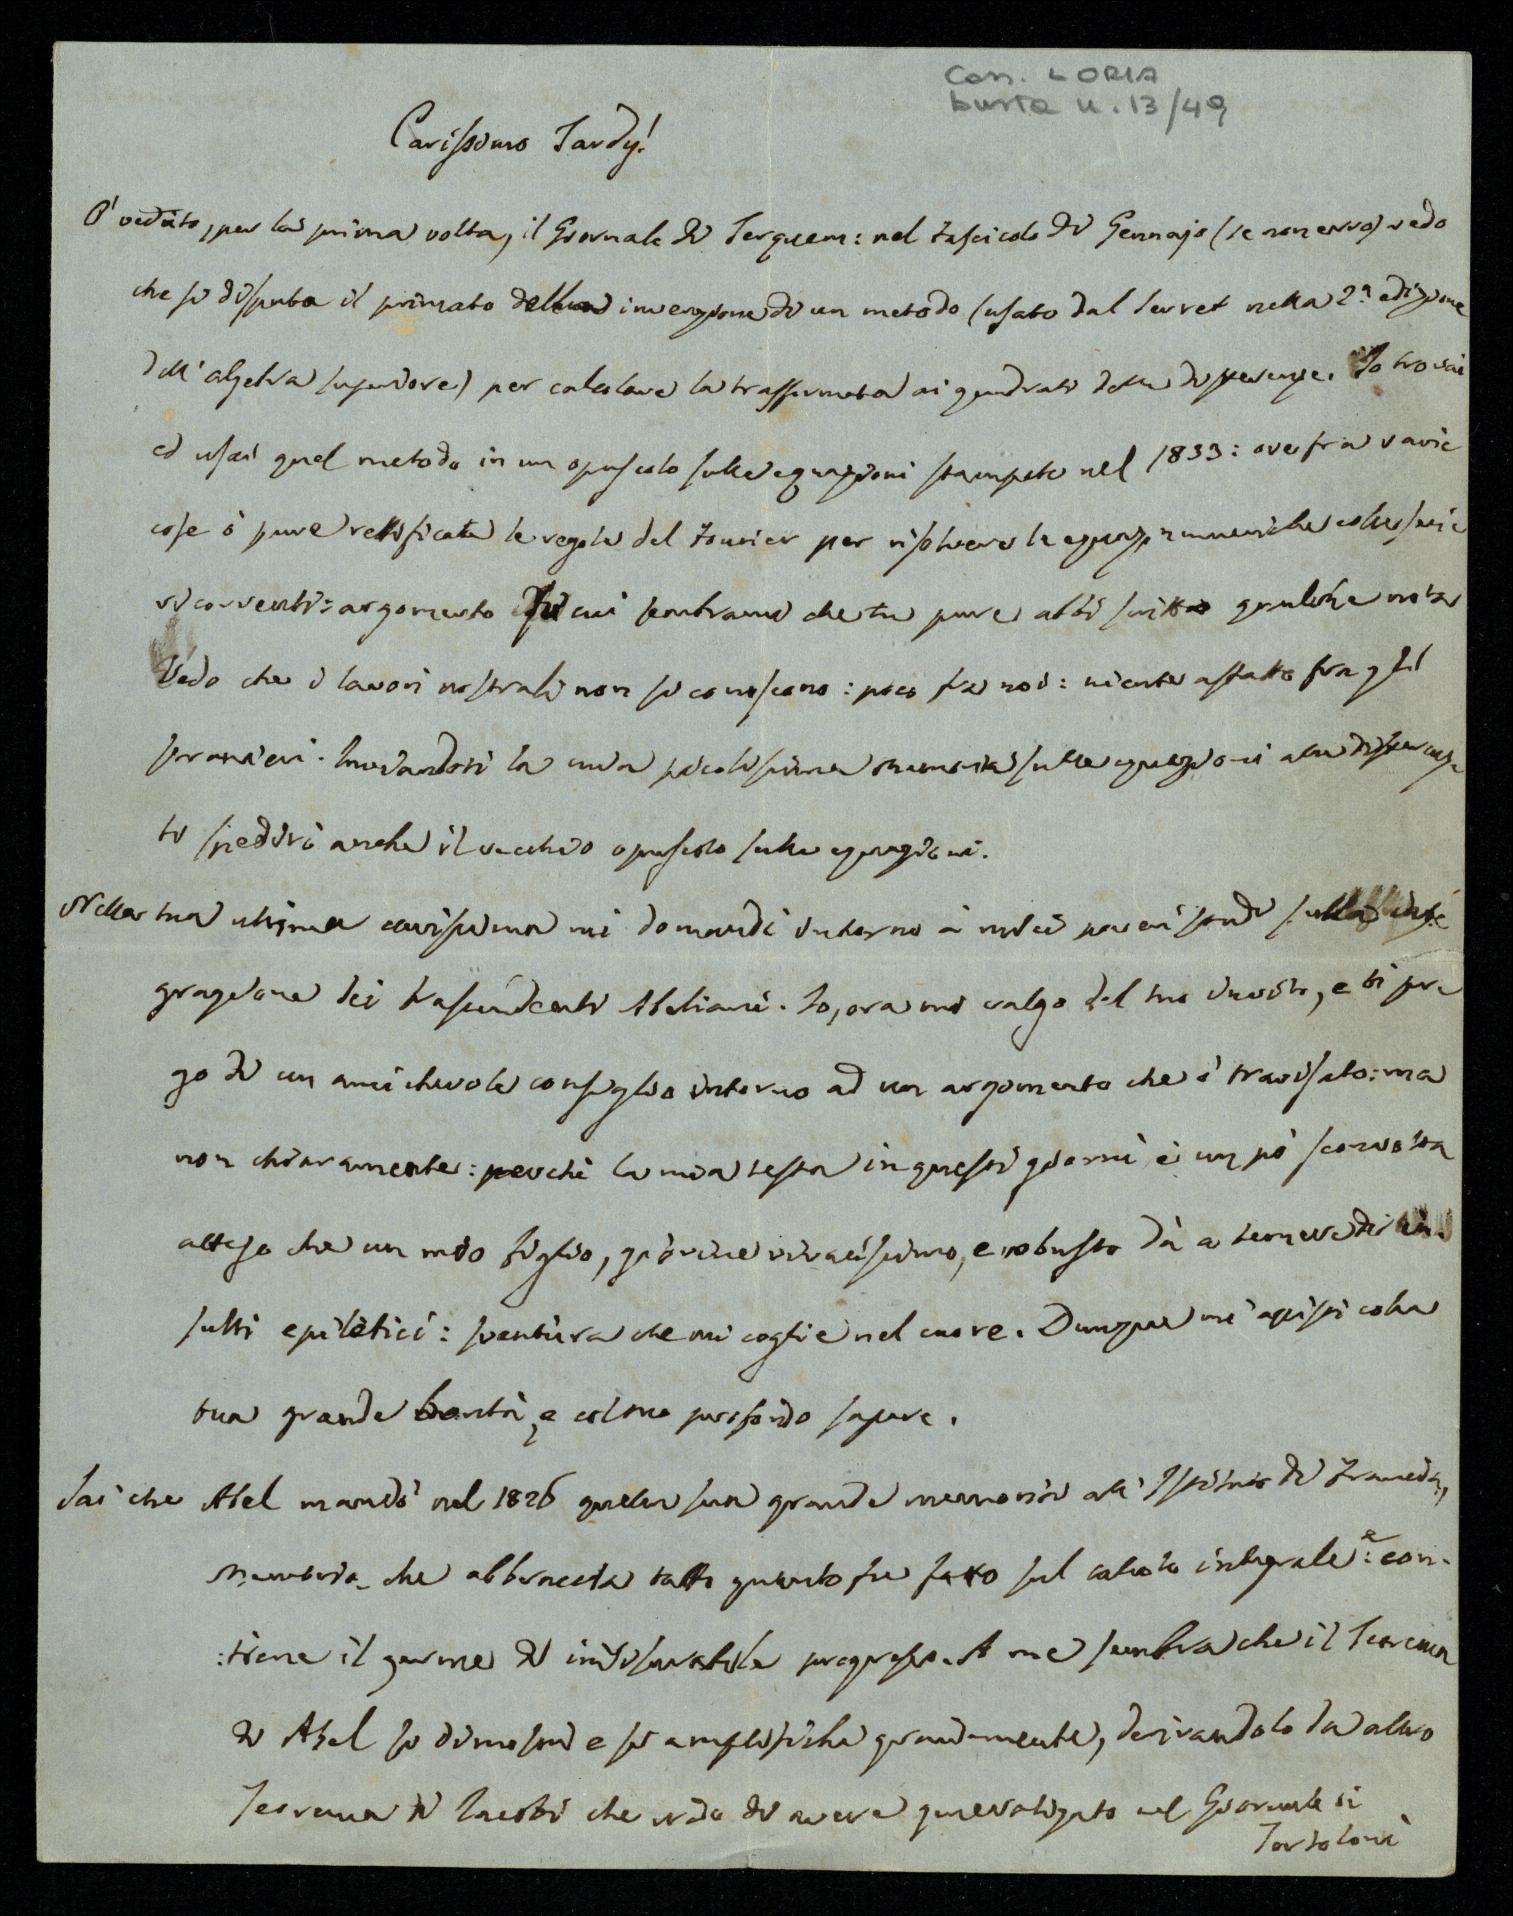 Cass. LORIA
busta n. 13/49
Carissimo Tardy!
Ò veduto, per la prima volta, il Giornale di Terquem: nel fascicolo di Gennajo (se non erro) vedo
che si disputa il primato della invenzione di un metodo (usato dal Serret nella 2.a edizione
dell'algebra superiore) per calcolare la trasformata ai quadrati delle differenze. Io trovai
ed usai quel metodo in un opuscolo sulle equazioni stampato nel 1833: ove fra varie
cose ò pure rettificata le regole del Fourier per risolvere le equaz. numeriche colle serie
ricorrenti: argomento di cui sembrami che tu pure abbi scritto qualche nota
Vedo che i lavori nostrali non si conoscono: poco fra noi: niente affatto fra gli
stranieri. Inviandoti la mia piccolissima memoria sulle equazioni alle differenze
ti spedirò anche il vecchio opuscolo sulle equazioni.
Nella tua ultima carissima mi domandi intorno a miei studi sulla inte
grazione dei trascendenti Abeliani. Io, ora mi valgo del tuo invito, e ti pre
go di un amichevole consiglio intorno ad un argomento che ò travisato: ma
non chiaramente: perchè la mia testa in questi giorni è un pò sconvolta
atteso che un mio figlio, giovine vivacissimo, e robusto dà a temere di in-
sulti epiletici: sventura che mi coglie nel cuore. Dunque mi assisti colla
tua grande bontà, e col tuo profondo sapere.
Sai che Abel mandò nel 1826 quella sua grande memoria all'Istituto di Francia,
memoria che abbraccia tutto quanto fu fatto sul calcolo integrale: e con-
:tiene il germe di immisurabile progresso. A me sembra che il Teorema
di Abel si dimostri e si amplifichi grandemente, derivandolo da altro
Teorema di Jacobi che credo di avere generalizzato nel Giornale di
Tortolini